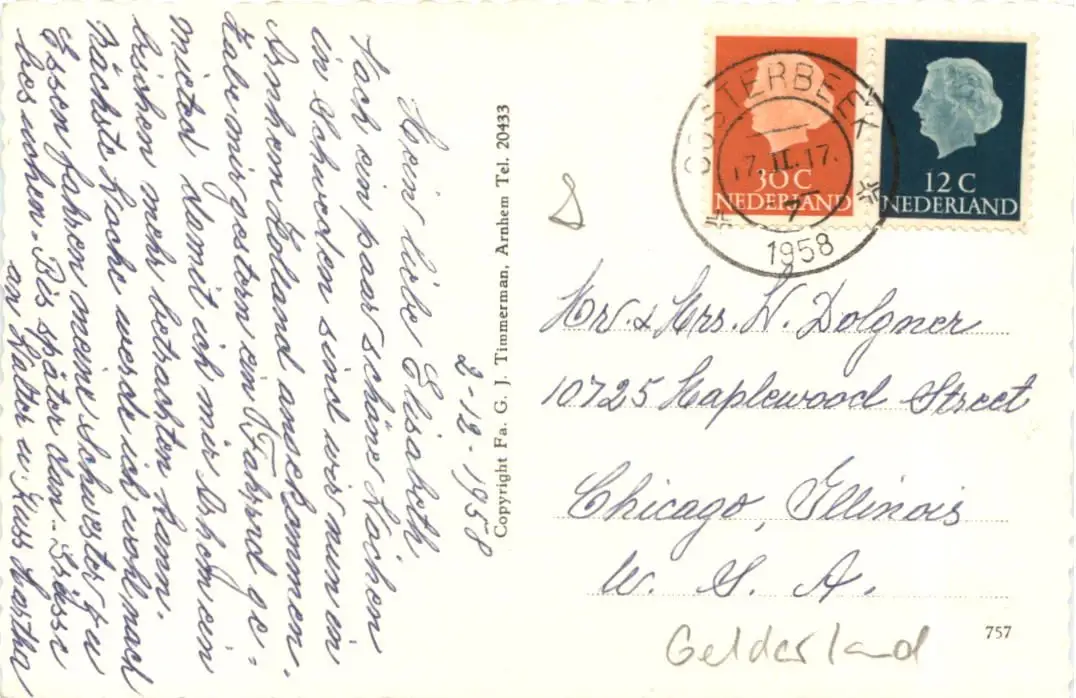 2-12-1958
Mein liebe Elisabeth
Nach ein paar schöne Wochen
in Schweden sind wir nun in
Arnhem Holand angekommen.
Habe mir gestern ein Fahrrad ge=
mieted damit ich mir Arhem ein
bischen mehr betrachten kann.
Nächste Woche werde ich wohl nach
Essen fahren meine Schwester zu
besuchen. Bis später dan. Grüsse
an Walter u. Kuss Martha
Copyright Fa. G. J. Timmerman, Arnhem Tel. 20433
OOSTERBEEK
17.II.17.
1958
30 C
NEDERLAND
12 C
NEDERLAND
Mr. & Mrs. W. Dolgner
10725 Maplewood Street
Chicago, Illinois
U. S. A.
757
Gelderland